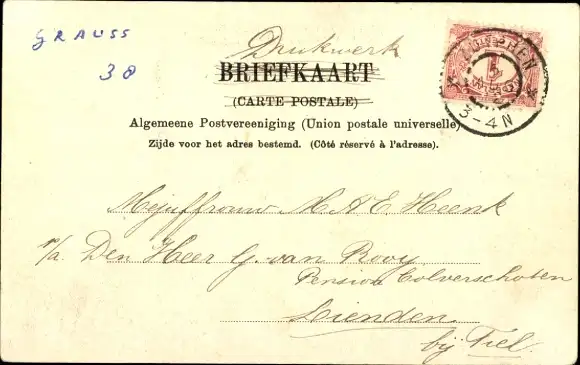 GRAUSS
38
Drukwerk
BRIEFKAART
(CARTE POSTALE)
Algemeene Postvereeniging (Union postale universelle)
Zijde voor het adres bestemd. (Côté réservé à l'adresse).
ZUTPHEN
3-4N
1
Mejuffrouw M. A. E. Heenk
p/a. Den Heer G. van Rooy
Pension Colverschoten
Lienden
bij Tiel.